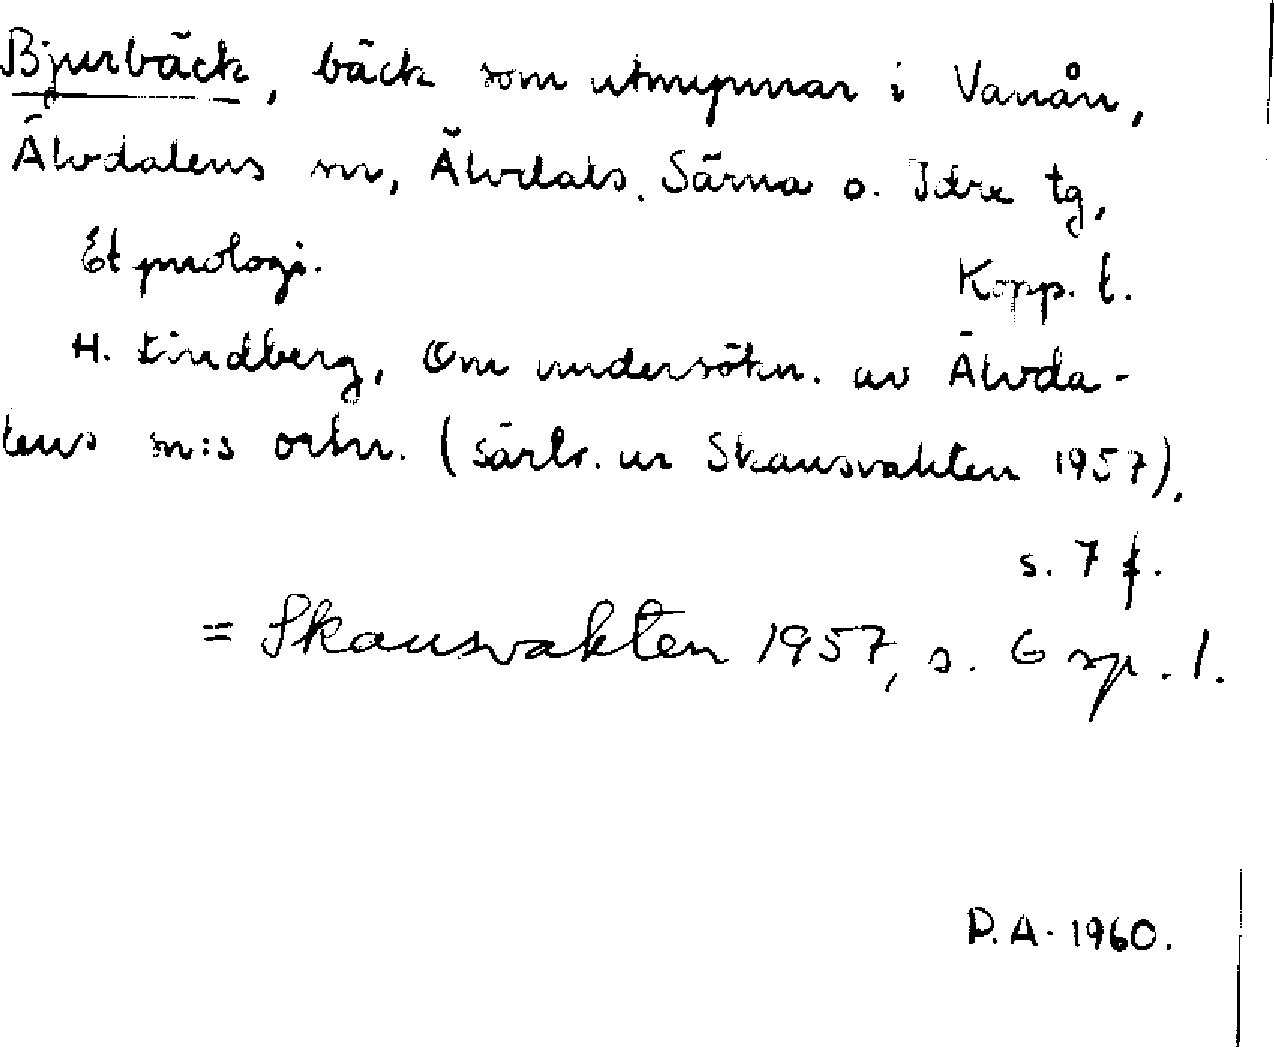 Bjurbäck, bäck som utmynnar i Vanån,
Älvdalens sn, Älvdals, Särna o. Idre tg,
Etymologi. Kopp. l.
H. Lindberg, Om undersökn. av Älvda-
lens sn:s ortn. (särtr. ur Skansvakten 1957),
s. 7 f.
= Skansvakten 1957, s. 6 sp. 1.
D.A. 1960.